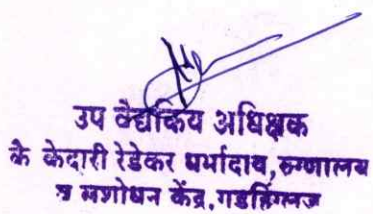 उप वैद्यकिय अधिक्षक
कै केदारी रेडेकर धर्मादाय, रुग्णालय
व संशोधन केंद्र, गडहिंग्लज